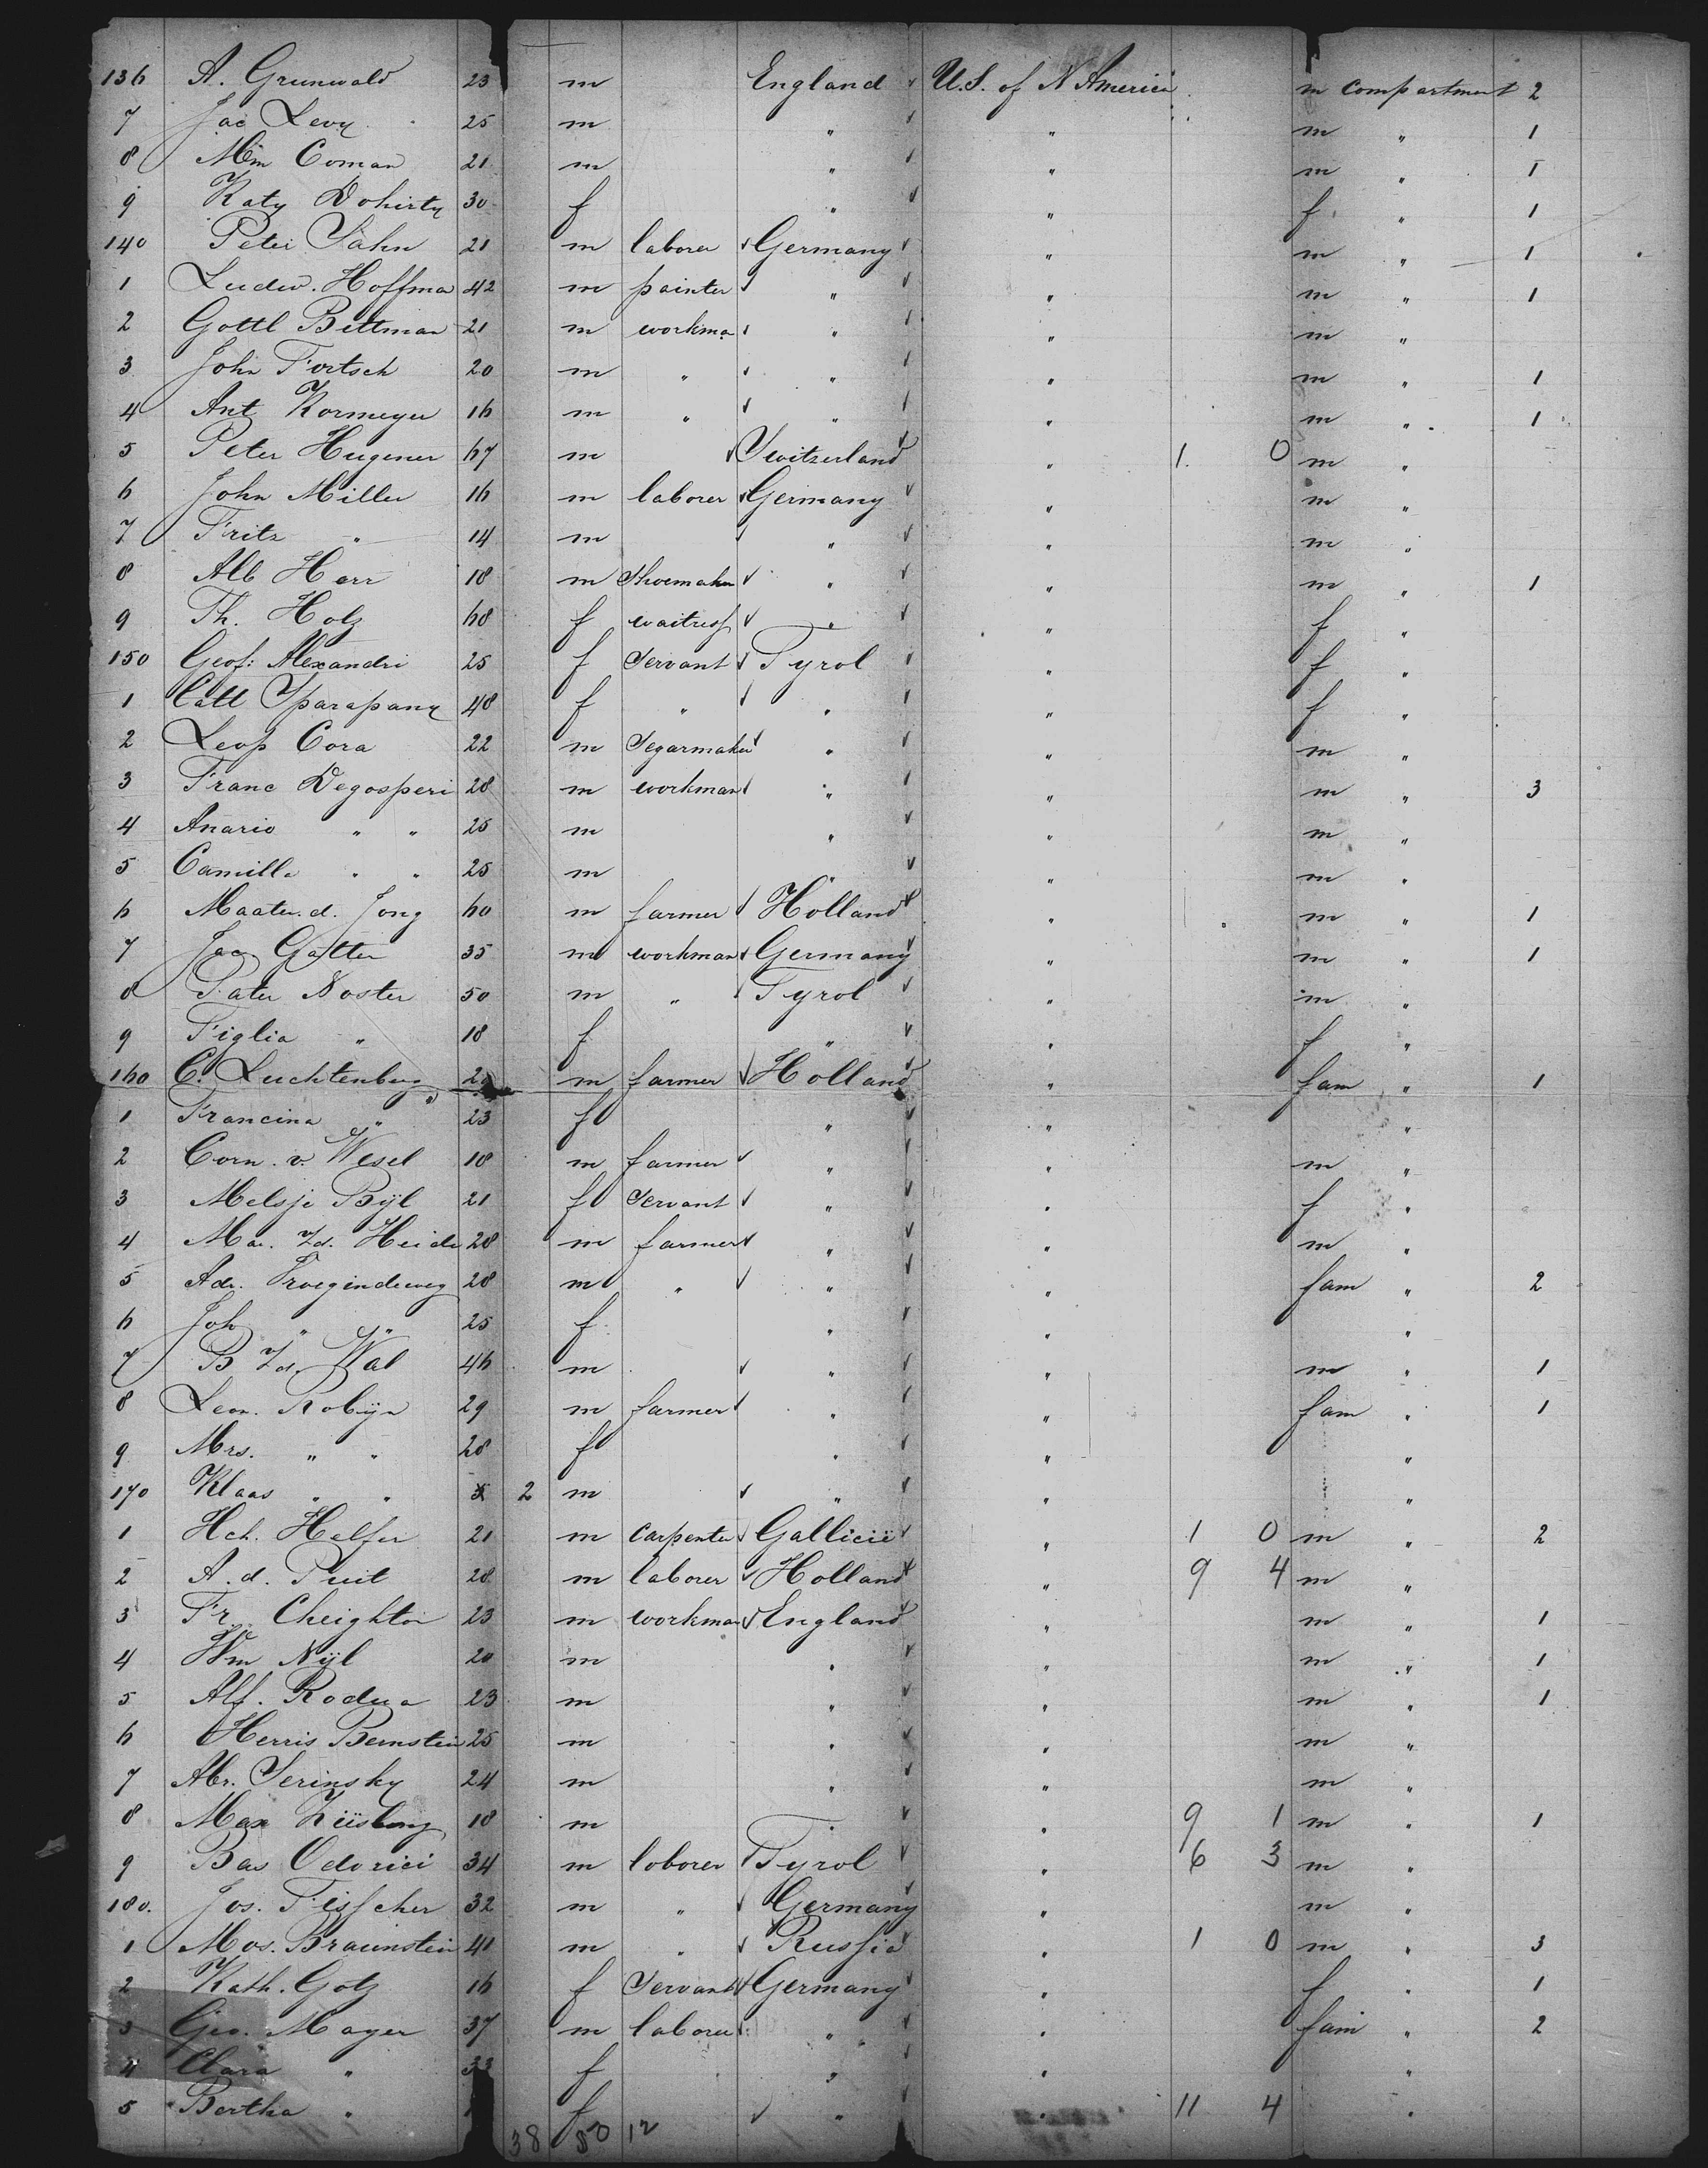 136 A. Grunwald 23 m England U.S. of N America m compartment 2
7 Jac Levy 25 m " " m " 1
8 Wm Coman 21 m " " m " 1
9 Katy Dohirty 30 f " " f " 1
140 Peter Jahn 21 m laborer Germany " m " 1
1 Ludw. Hoffma 42 m painter " " m " 1
2 Gottl Bettman 21 m workma " " m "
3 John Fortsch 20 m " " " m " 1
4 Ant Kormeyer 16 m " " " m " 1
5 Peter Hugener 67 m Switzerland " 1 0 m "
6 John Miller 16 m laborer Germany " m "
7 Fritz " 14 m " " m "
8 Alb Harr 18 m Shoemaker " " m " 1
9 Th. Holz 68 f waitress " " f "
150 Geof: Alexandri 25 f Servant Tyrol " f "
1 Catt Sparapany 48 f " " " f "
2 Leop Cora 22 m Segarmaker " " m "
3 Franc Degosperi 28 m workman " " m " 3
4 Anario " " 25 m " " m "
5 Camilla " " 25 m " " m "
6 Maater. d. Jong 60 m farmer Holland " m " 1
7 Jac Gatter 35 m workman Germany " m " 1
8 Pater Noster 50 m " Tyrol " m "
9 Figlia " 18 f " " f "
160 C. Luchtenburg m farmer Holland " fam " 1
1 Francina " 23 f " " "
2 Corn. v. Wesel 18 m farmer " " m "
3 Melsje Bijl 21 f Servant " " f "
4 Ma. Heide 28 m farmer " " m "
5 Adr. Troegindeweg 28 m " " " fam " 2
6 Joh " " 25 f " " "
7 B Wal 46 m " " m " 1
8 Leon. Robijn 29 m farmer " " fam " 1
9 Mrs. " " 28 f " " "
170 Klaas " " 2 m " " "
1 Hch. Helfer 21 m carpenter Gallicië " 1 0 m " 2
2 A. d. Puit 28 m laborer Holland " 9 4 m "
3 Fr. Cheighton 23 m workman England " m " 1
4 Wm Nijl 20 m " " m " 1
5 Alf. Rodua 23 m " " m " 1
6 Herris Bernstein 25 m " " m "
7 Abr. Serinsky 24 m " " m "
8 Max 18 m " " 9 1 m " 1
9 Bas Odorici 34 m loborer Tyrol " 6 3 m "
180. Jos. Fisscher 32 m " Germany " m "
1 Mos. Braunstein 41 m " Russia " 1 0 m " 3
2 Kath. Gotz 16 f Servant Germany " f " 1
3 Geo. Mayer 37 m laborer " " fam " 2
4 Clara " 33 f " " "
5 Bertha " f " " 11 4 "
38 50 12